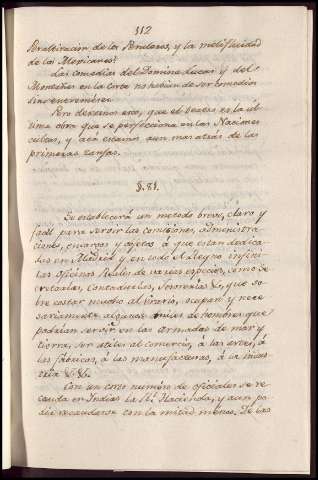 112
de los Peruleros, y la
de los Mexicanos?
Las comedias del Domine Lucas y del
Montañes en la Corte no habian de ser comedias
sin entremes.
Pero dexemos eso, que el teatro es la úl-
tima obra que se perfecciona en las Naciones
cultas, y acá estamos aun mas atrás de las
primeras zanjas.
§. 81.
Se establecerá un metodo breve, claro y
facil para servir las comisiones, administra-
ciones, encargos y objetos á que estan dedica-
das en Madrid y en todo el Reyno infini-
tas oficinas Reales de varias especies, como Se-
cretarías, Contadurías, Tesorerías &c, que so-
bre costar mucho al Erario, ocupan y nece-
sariamente algunos miles de hombres que
podrian servir en las armadas de mar y
tierra, ser utiles al comercio, á las artes, á
las fábricas, á las manufacturas, á la indus-
tria &c. &c.
Con un corto numéro de oficiales se re-
cauda en Indias la Rl. Hacienda, y aun po-
dia recaudarse con la mitad menos. De las